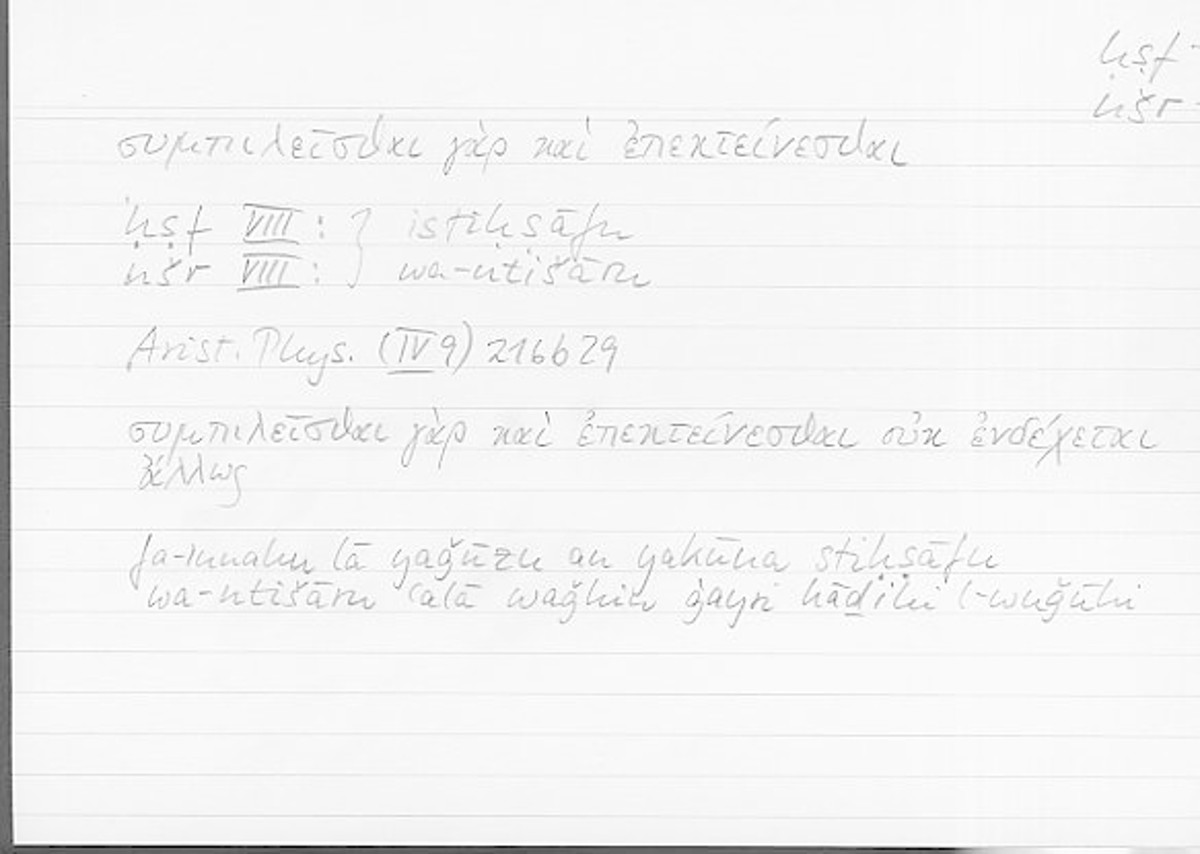 ḥṣf
nšr
συμπιλεῖσθαι γὰρ καὶ ἐπεκτείνεσθαι
ḥṣf VIII : } istiḥṣāfu
nšr VIII : } wa-ntišāru
Arist. Phys. (IV 9) 216b29
συμπιλεῖσθαι γὰρ καὶ ἐπεκτείνεσθαι οὐκ ἐνδέχεται
ἄλλως
fa-innahu lā yaǧūzu an yakūna stiḥṣāfu
wa-ntišāru ʿalā waǧhin ġayri hāḏihi l-wuǧūhi